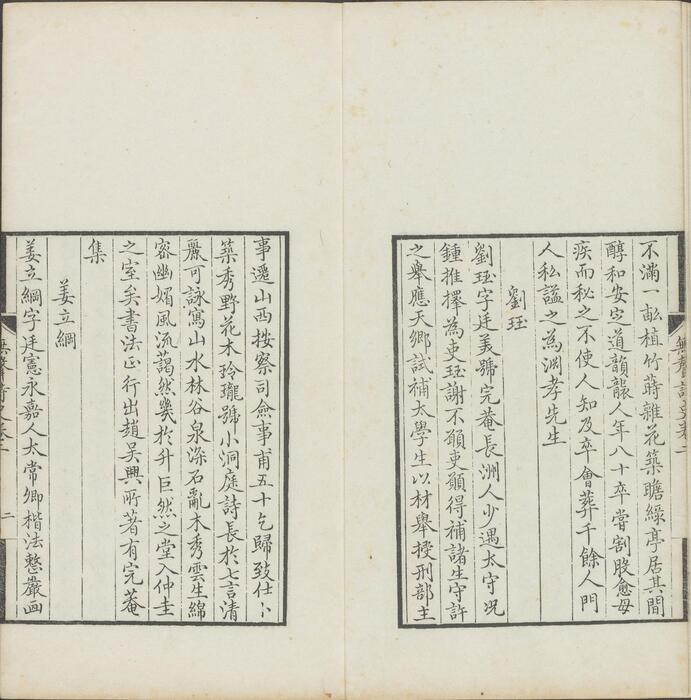 不滿一畝植竹蒔雜花築瞻綠亭居其間
醇和安定道韻襲人年八十卒嘗割股愈母
疾而秘之不使人知及卒會葬千餘人門
人私謚之為淵孝先生
劉珏
劉珏字廷美號完菴長洲人少遇太守况
鍾推擇為吏珏謝不願吏願得補諸生守許
之舉應天鄉試補太學生以材舉授刑部主
事遷山西按察司僉事甫五十乞歸致仕卜
築秀野花木玲瓏號小洞庭詩長於七言清
麗可詠寫山水林谷泉深石亂木秀雲生綿
密幽媚風流藹然幾於升巨然之堂入仲圭
之室矣書法正行出趙吳興所著有完菴
集
姜立綱
姜立綱字廷憲永嘉人太常卿楷法整嚴画
無聲詩史卷二
二